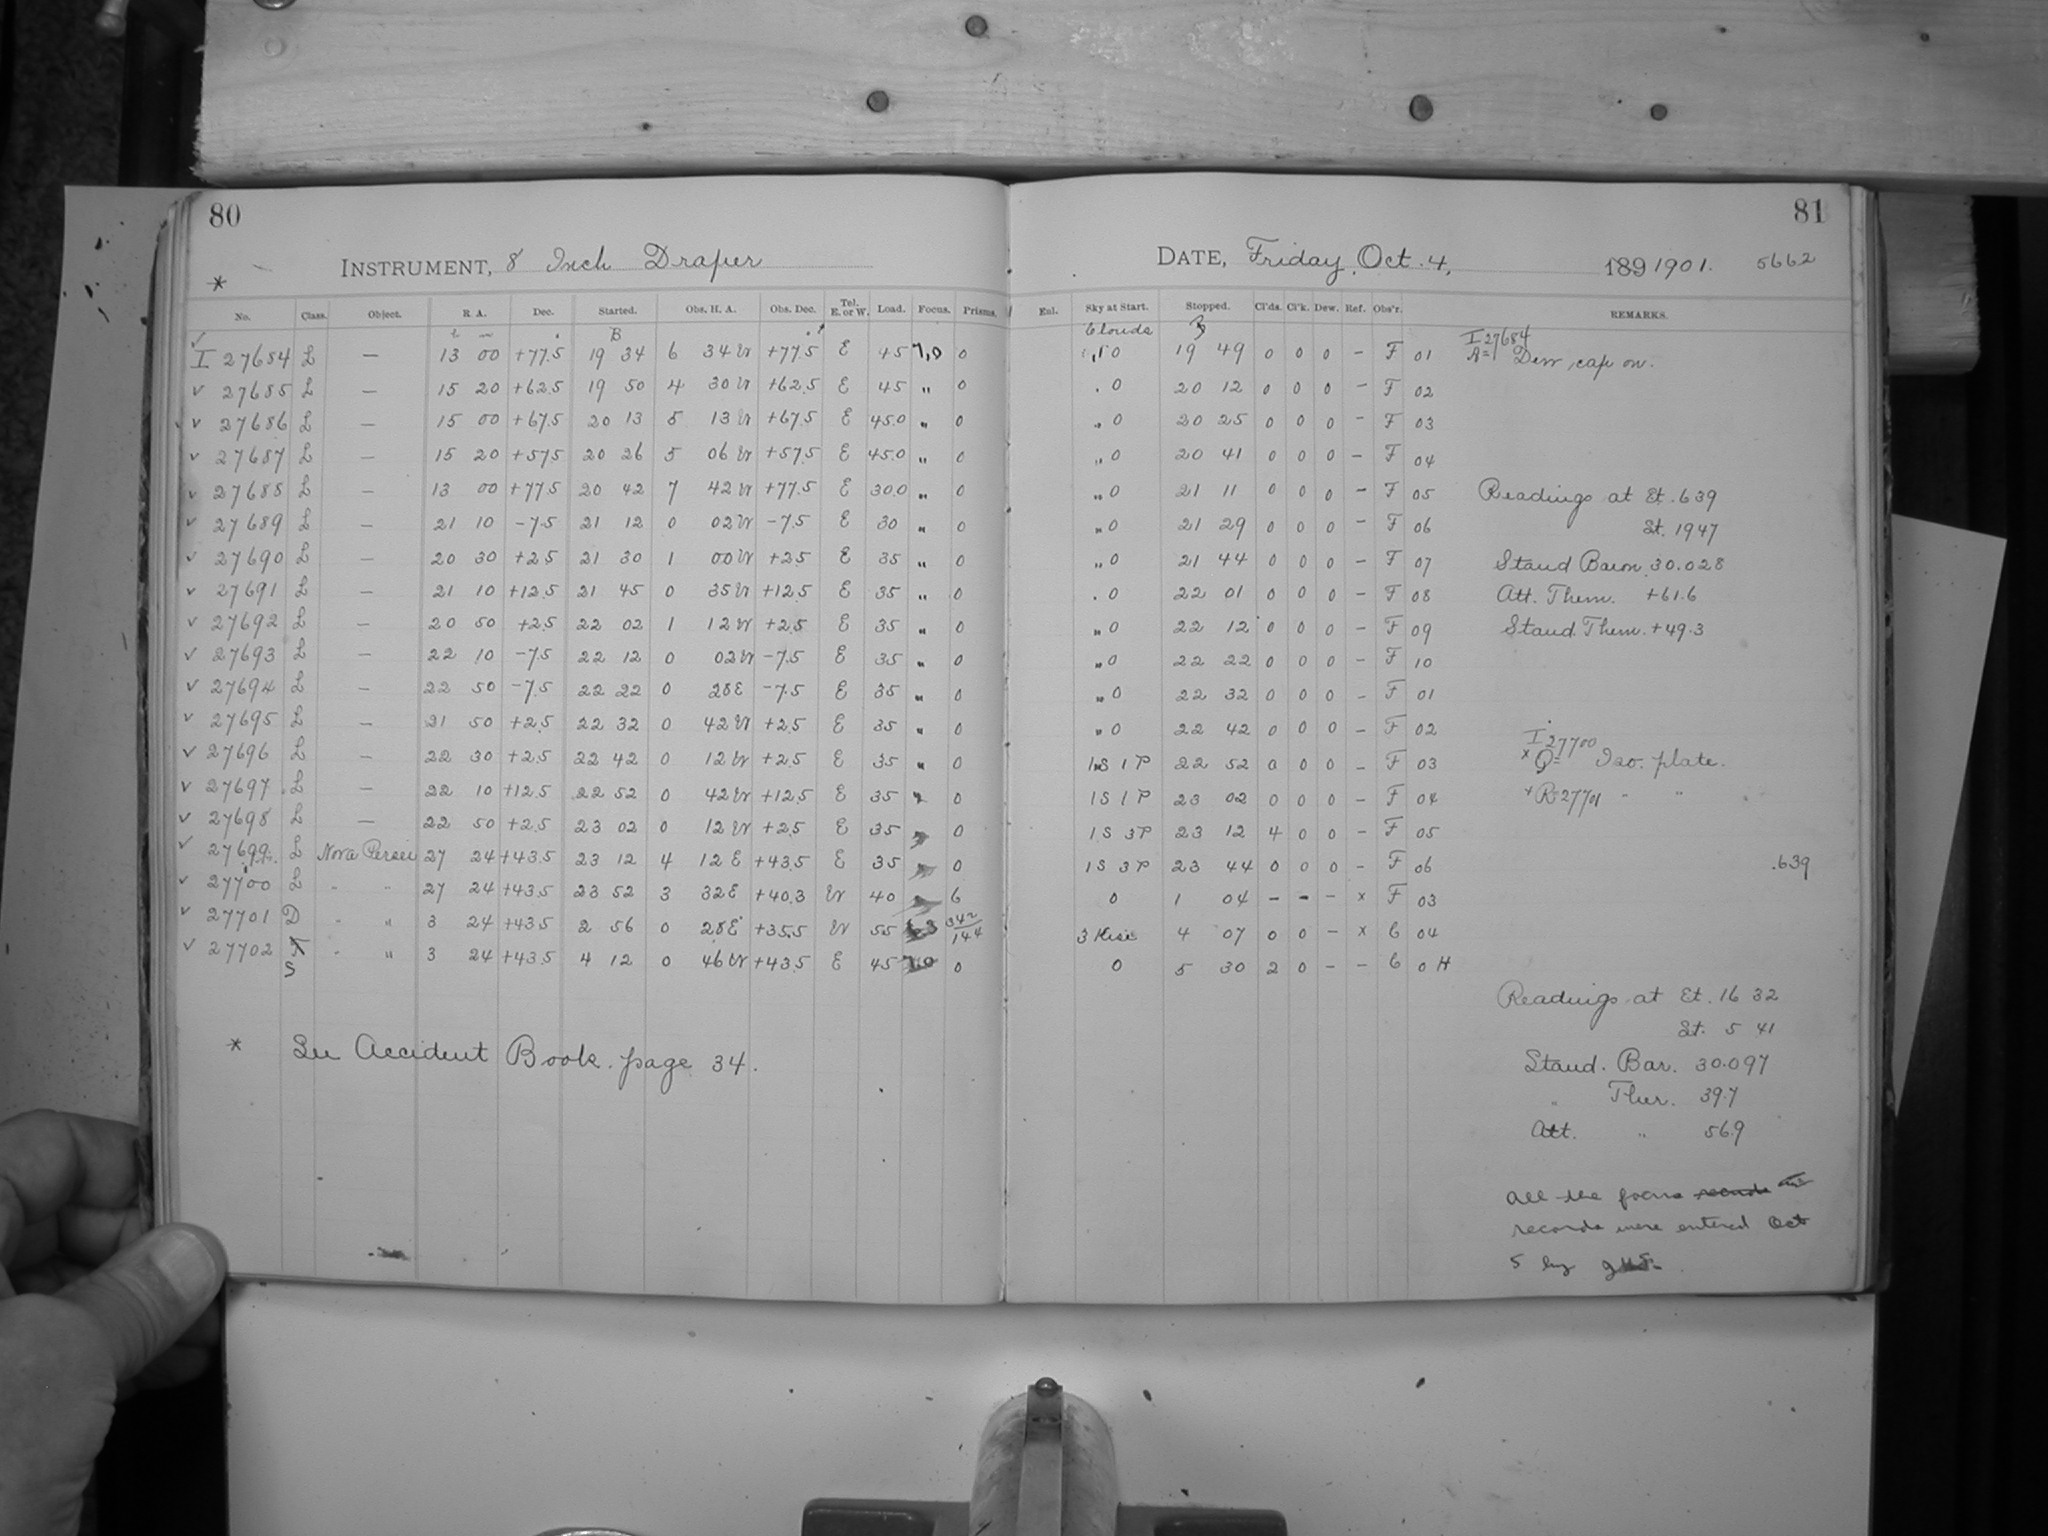 80
* INSTRUMENT, 8 Inch Draper
No. Class. Object. R A. Dec. Started. Obs. H. A. Obs. Dec. Tel. E. or W. Load. Focus. Prisms.
I 27684 L — 13 00 +77.5 19 34 6 34 W +77.5 E 45 7,0 0
v 27685 L — 15 20 +62.5 19 50 4 30 W +62.5 E 45 " 0
v 27686 L — 15 00 +67.5 20 13 5 13 W +67.5 E 45.0 " 0
v 27687 L — 15 20 +57.5 20 26 5 06 W +57.5 E 45.0 " 0
v 27688 L — 13 00 +77.5 20 42 7 42 W +77.5 E 30.0 " 0
v 27689 L — 21 10 -7.5 21 12 0 02 W -7.5 E 30 " 0
v 27690 L — 20 30 +2.5 21 30 1 00 W +2.5 E 35 " 0
v 27691 L — 21 10 +12.5 21 45 0 35 W +12.5 E 35 " 0
v 27692 L — 20 50 +2.5 22 02 1 12 W +2.5 E 35 " 0
v 27693 L — 22 10 -7.5 22 12 0 02 W -7.5 E 35 " 0
v 27694 L — 22 50 -7.5 22 22 0 28 E -7.5 E 35 " 0
v 27695 L — 21 50 +2.5 22 32 0 42 W +2.5 E 35 " 0
v 27696 L — 22 30 +2.5 22 42 0 12 W +2.5 E 35 " 0
v 27697 L — 22 10 +12.5 22 52 0 42 W +12.5 E 35 " 0
v 27698 L — 22 50 +2.5 23 02 0 12 W +2.5 E 35 " 0
v 27699 L Nova Persei 27 24 +43.5 23 12 4 12 E +43.5 E 35 " 0
v 27700 L " " 27 24 +43.5 23 52 3 32 E +40.3 W 40 " 6
v 27701 D " " 3 24 +43.5 2 56 0 28 E +35.5 W 55 342/144
v 27702 S " " 3 24 +43.5 4 12 0 46 W +43.5 E 45 7.0 0
* See Accident Book. page 34.
81
DATE, Friday, Oct. 4, 189 1901. 5662
Enl. Sky at Start. Stopped. Cl'ds. Cl'k. Dew. Ref. Obs'r. REMARKS.
Clouds
0 19 49 0 0 0 – F 01 I 27684 A= Dew cap on.
" 0 20 12 0 0 0 – F 02
" 0 20 25 0 0 0 – F 03
" 0 20 41 0 0 0 – F 04
" 0 21 11 0 0 0 – F 05 Readings at Et. 639
" 0 21 29 0 0 0 – F 06 St. 1947
" 0 21 44 0 0 0 – F 07 Stand Barom. 30.028
" 0 22 01 0 0 0 – F 08 Att. Therm. +61.6
" 0 22 12 0 0 0 – F 09 Stand. Them. +49.3
" 0 22 22 0 0 0 – F 10
" 0 22 32 0 0 0 – F 01
" 0 22 42 0 0 0 – F 02 I 27700
1S 1P 22 52 0 0 0 – F 03 x Q= Iso. plate.
1S 1P 23 02 0 0 0 – F 04 x R=27701 " "
1S 3P 23 12 4 0 0 – F 05
1S 3P 23 44 0 0 0 – F 06 .639
0 1 04 – – – x F 03
3 Rise 4 07 0 0 – x C 04
0 5 30 2 0 – – C 0 H
Readings at Et. 16 32
St. 5 41
Stand. Bar. 30.097
" Ther. 39.7
Att. " 56.9
All the focus
records were entered Oct
5 by